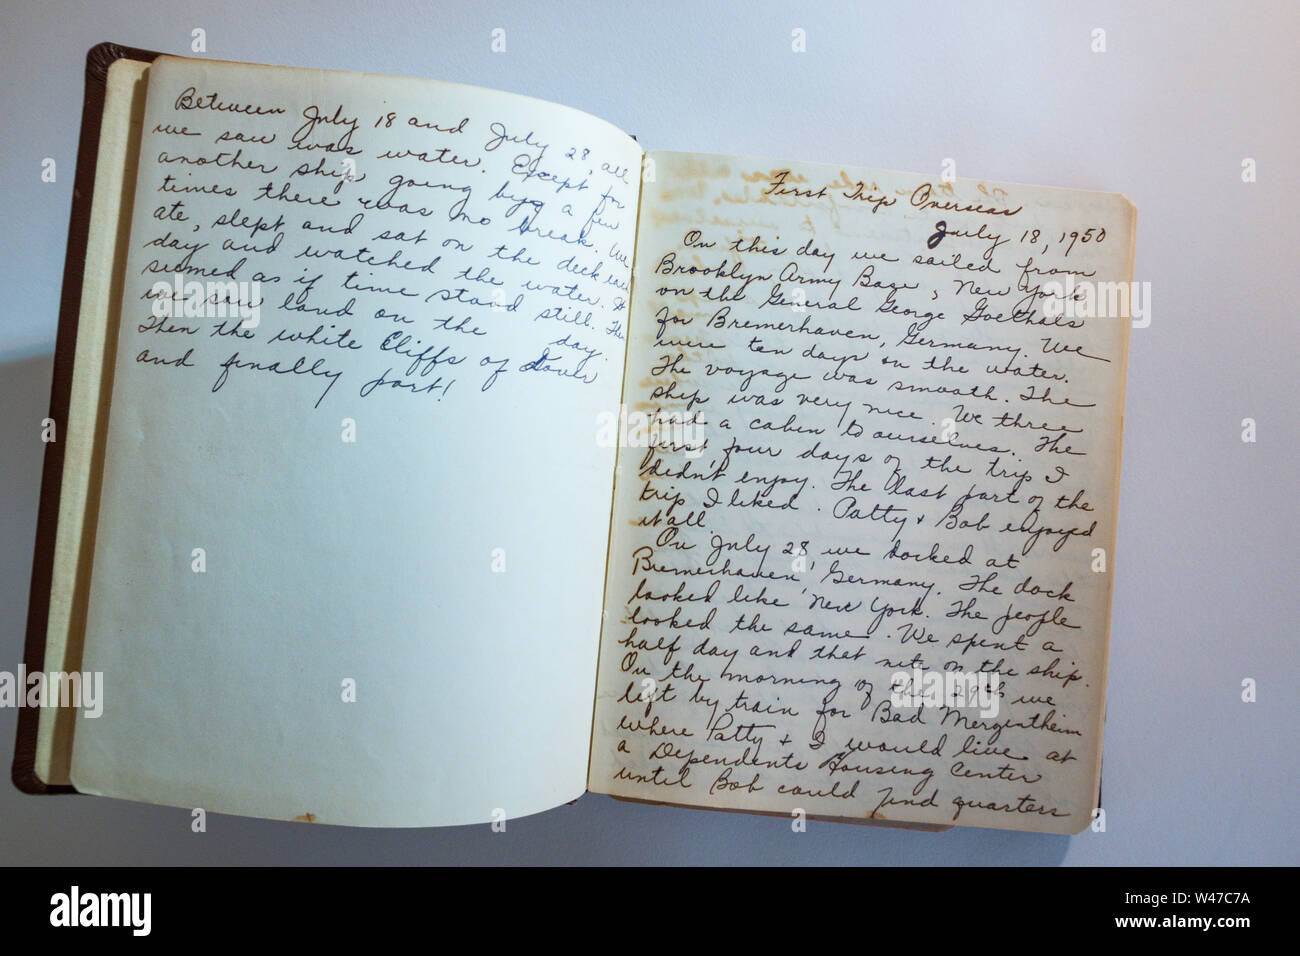 Between July 18 and July 28, all
we saw was water. Except for
another ship going by a few
times there was no break. We
ate, slept and sat on the deck each
day and watched the water. It
seemed as if time stood still. Then
we saw land on the day.
Then the white Cliffs of Dover
and finally port!
First Trip Overseas
July 18, 1950
On this day we sailed from
Brooklyn Army Base, New York
on the General George Goethals
for Bremerhaven, Germany. We
were ten days on the water.
The voyage was smooth. The
ship was very nice. We three
had a cabin to ourselves. The
first four days of the trip I
didn't enjoy. The last part of the
trip I liked. Patty + Bob enjoyed
it all.
On July 28, we docked at
Bremerhaven, Germany. The dock
looked like New York. The people
looked the same. We spent a
half day and that nite on the ship.
On the morning of the 29th we
left by train for Bad Mergentheim
where Patty + I would live at
a Dependents Housing Center
until Bob could find quarters
alamy
Image ID: W47C7A
www.alamy.com